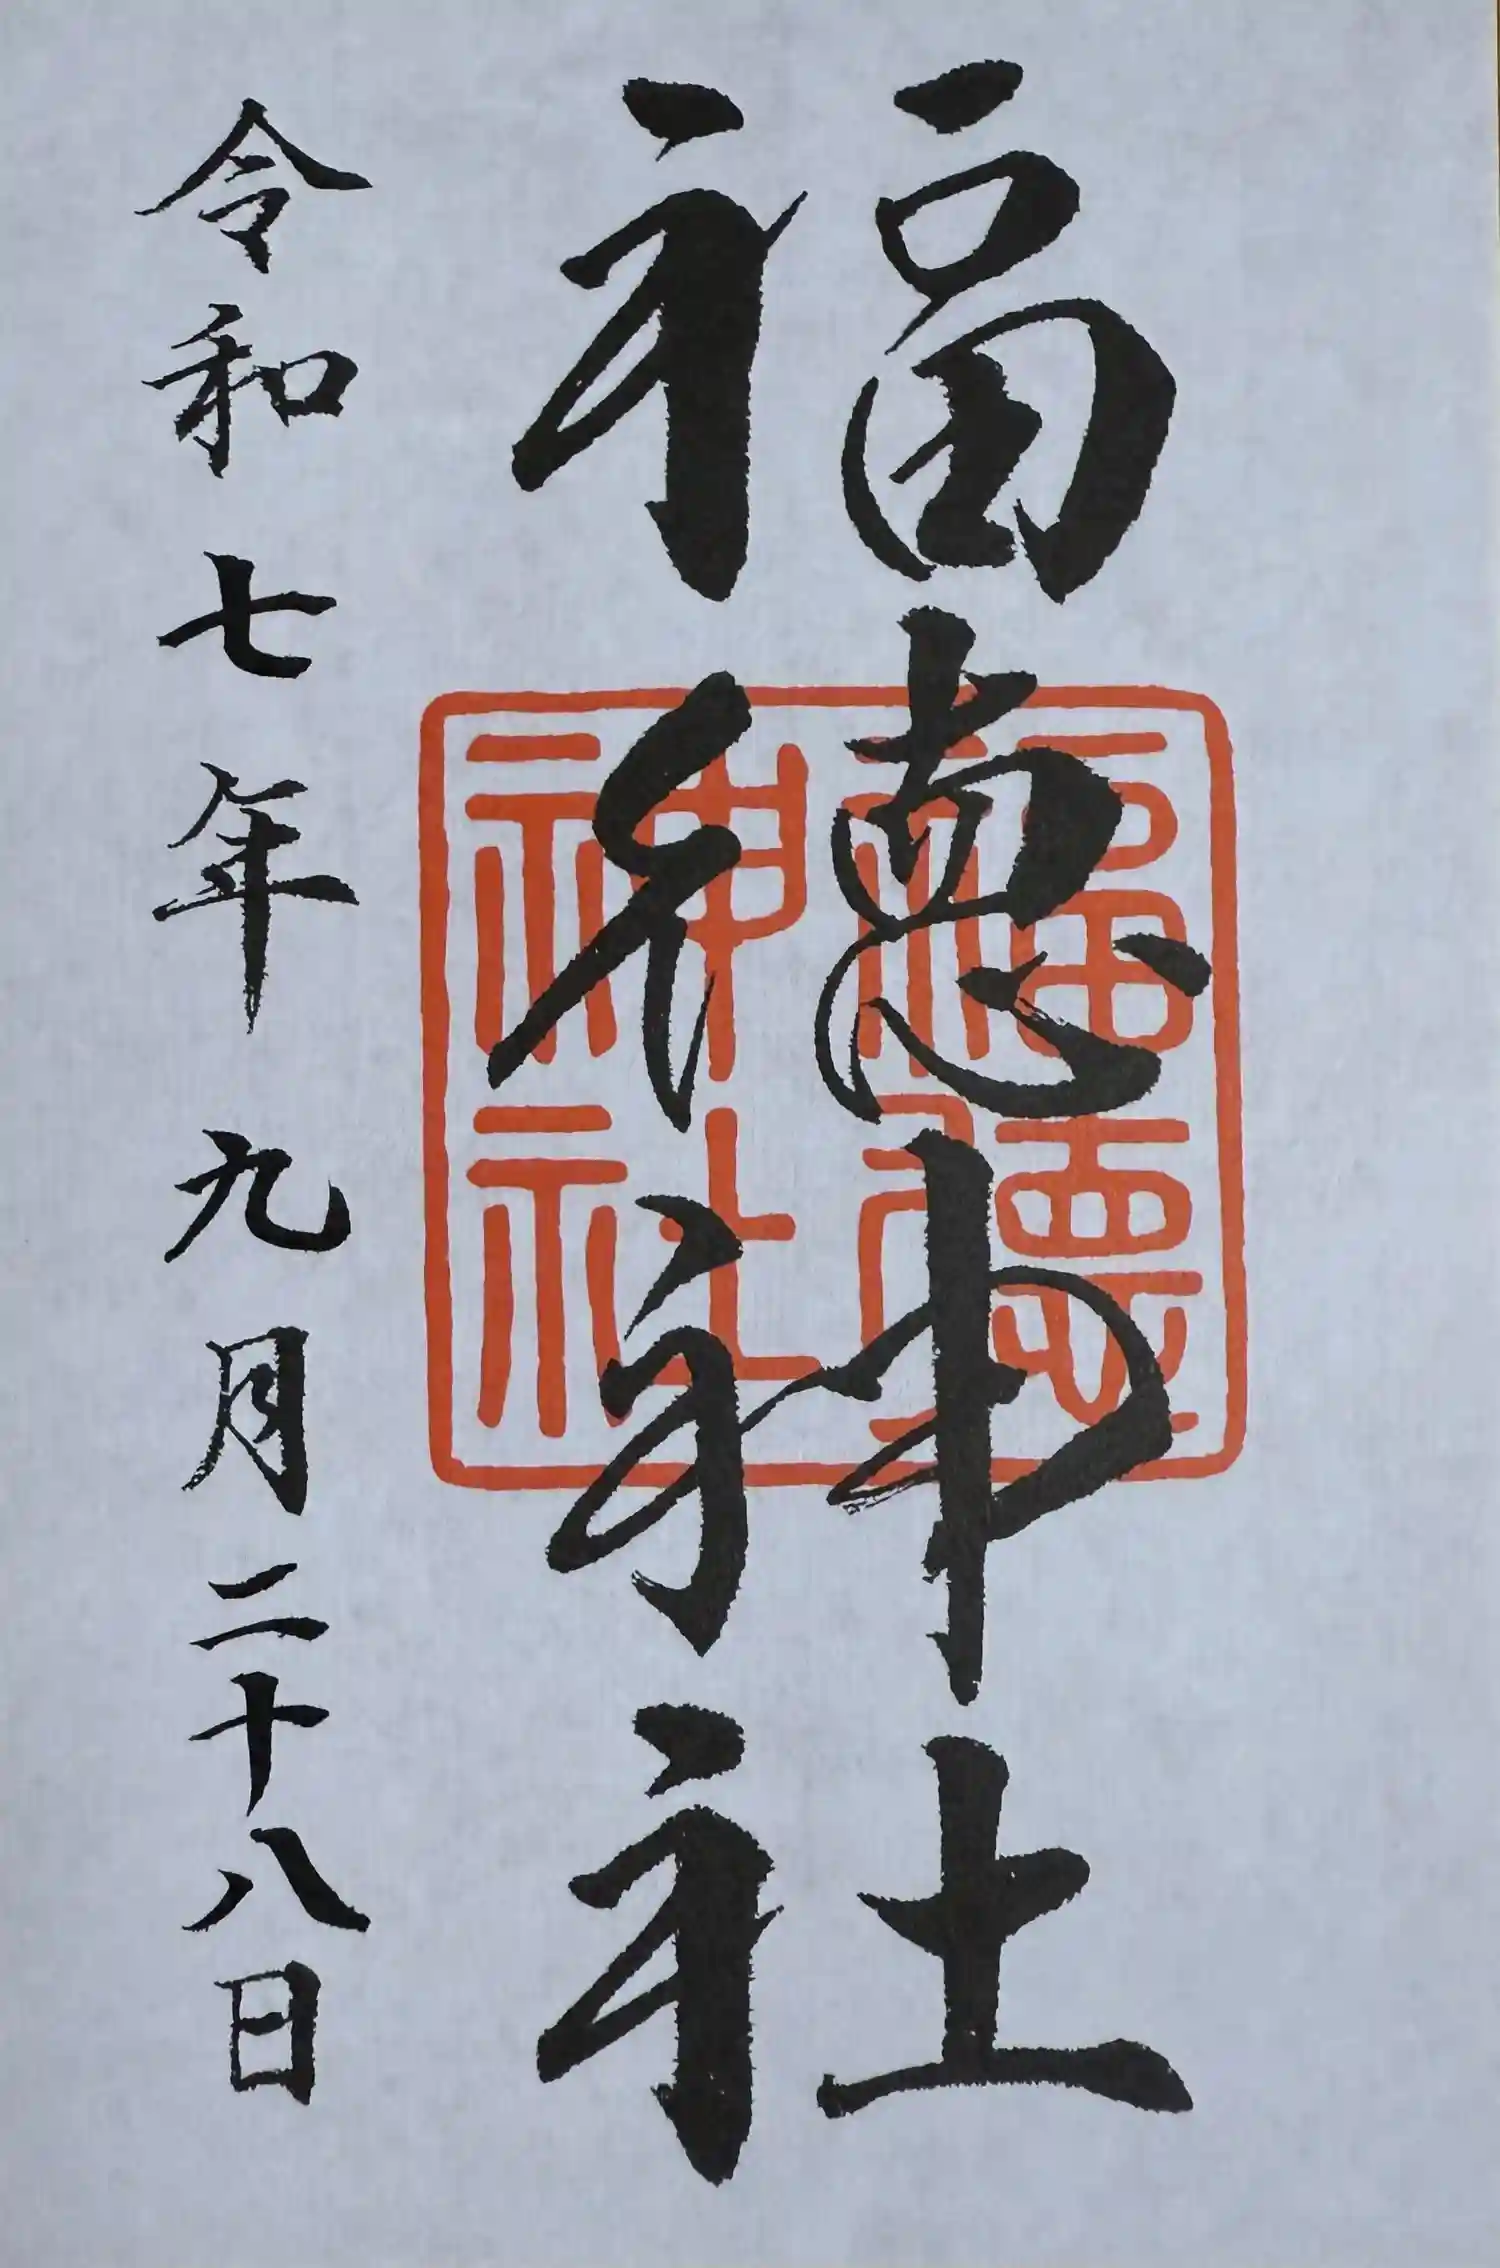 福徳神社
福徳
神社
令和七年九月二十八日